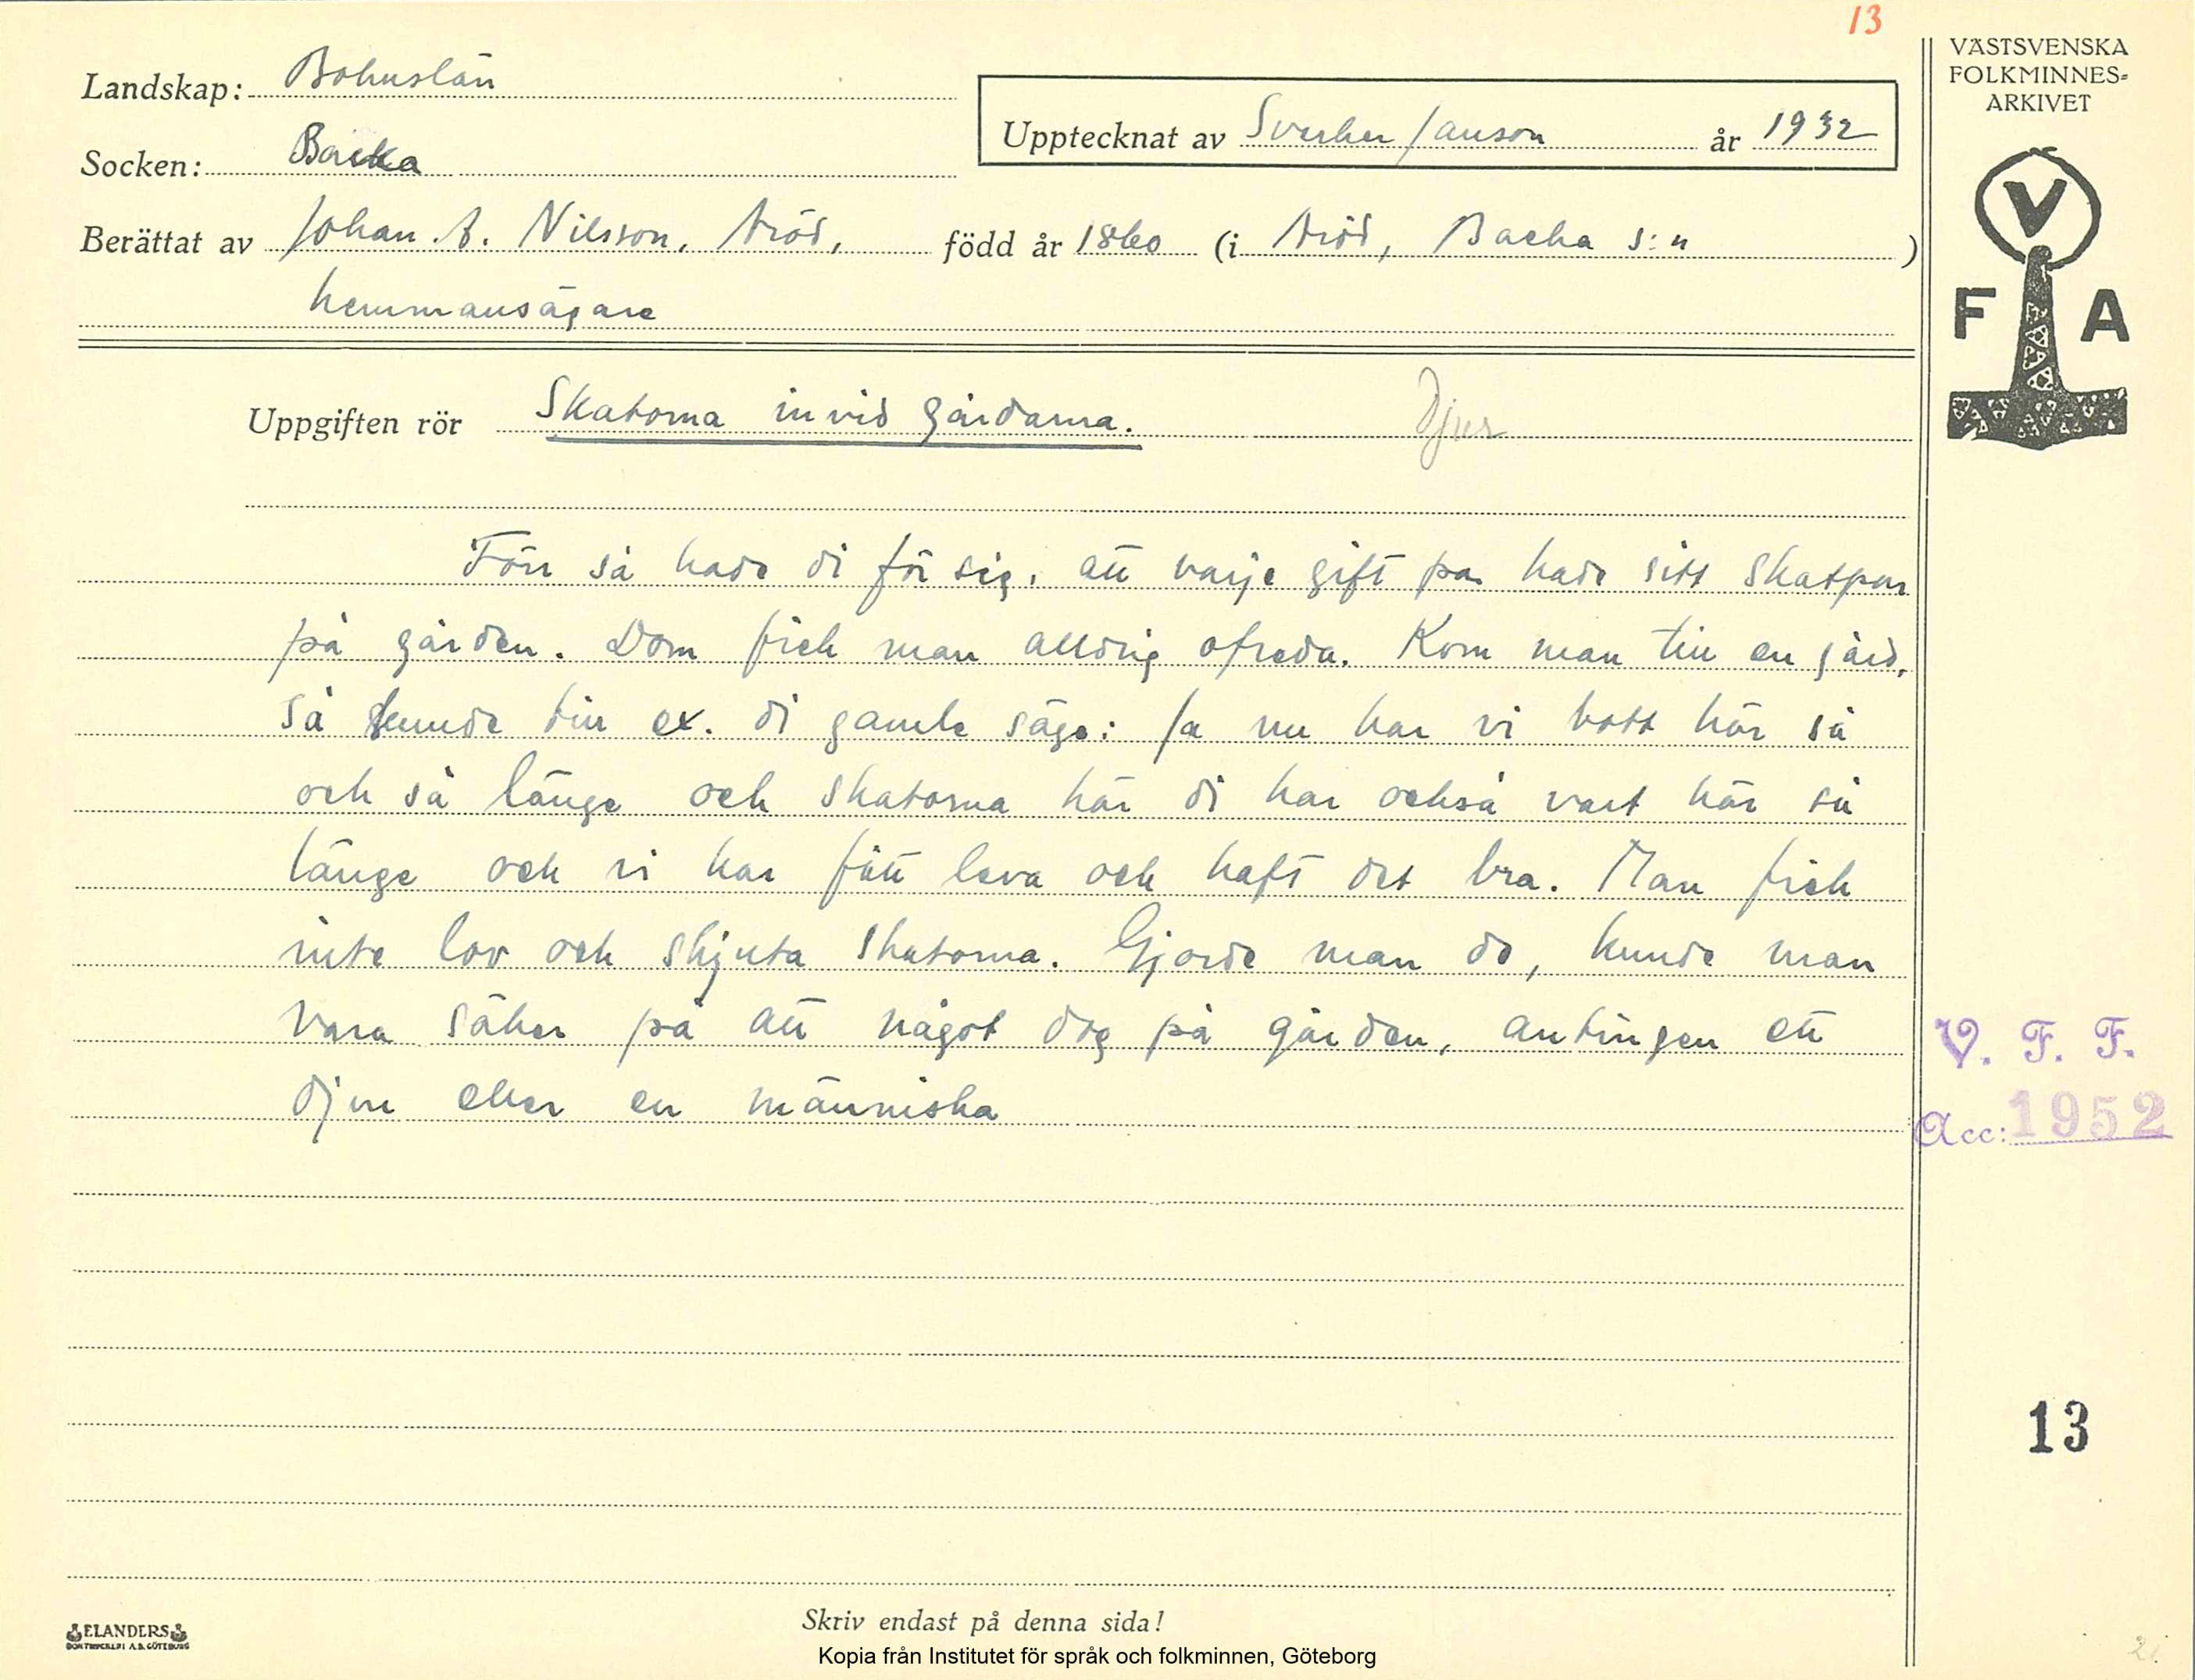 13
VÄSTSVENSKA
FOLKMINNES-
ARKIVET
Landskap: Bohuslän
Upptecknat av Sverker Janson år 1932
Socken: Backa
Berättat av Johan A. Nilsson, Aröd, född år 1860 (i Aröd, Backa s:n )
hemmansägare
V
F A
Uppgiften rör Skatorna invid gårdarna. Djur
Förr så hade di för sig, att varje gift par hade sitt skatpar
på gården. Dom fick man alldrig ofreda. Kom man till en gård,
så kunde till ex. di gamle säga: Ja nu har vi bott här så
och så länge och skatorna här di har också vart här så
länge och vi har fått leva och haft det bra. Man fick
inte lov och skjuta skatorna. Gjorde man de, kunde man
vara säker på att något dog på gården, antingen ett
djur eller en människa
V. F. F.
Acc: 1952
13
ELANDERS
BOKTRYCKERI A.B. GÖTEBORG
Skriv endast på denna sida!
Kopia från Institutet för språk och folkminnen, Göteborg